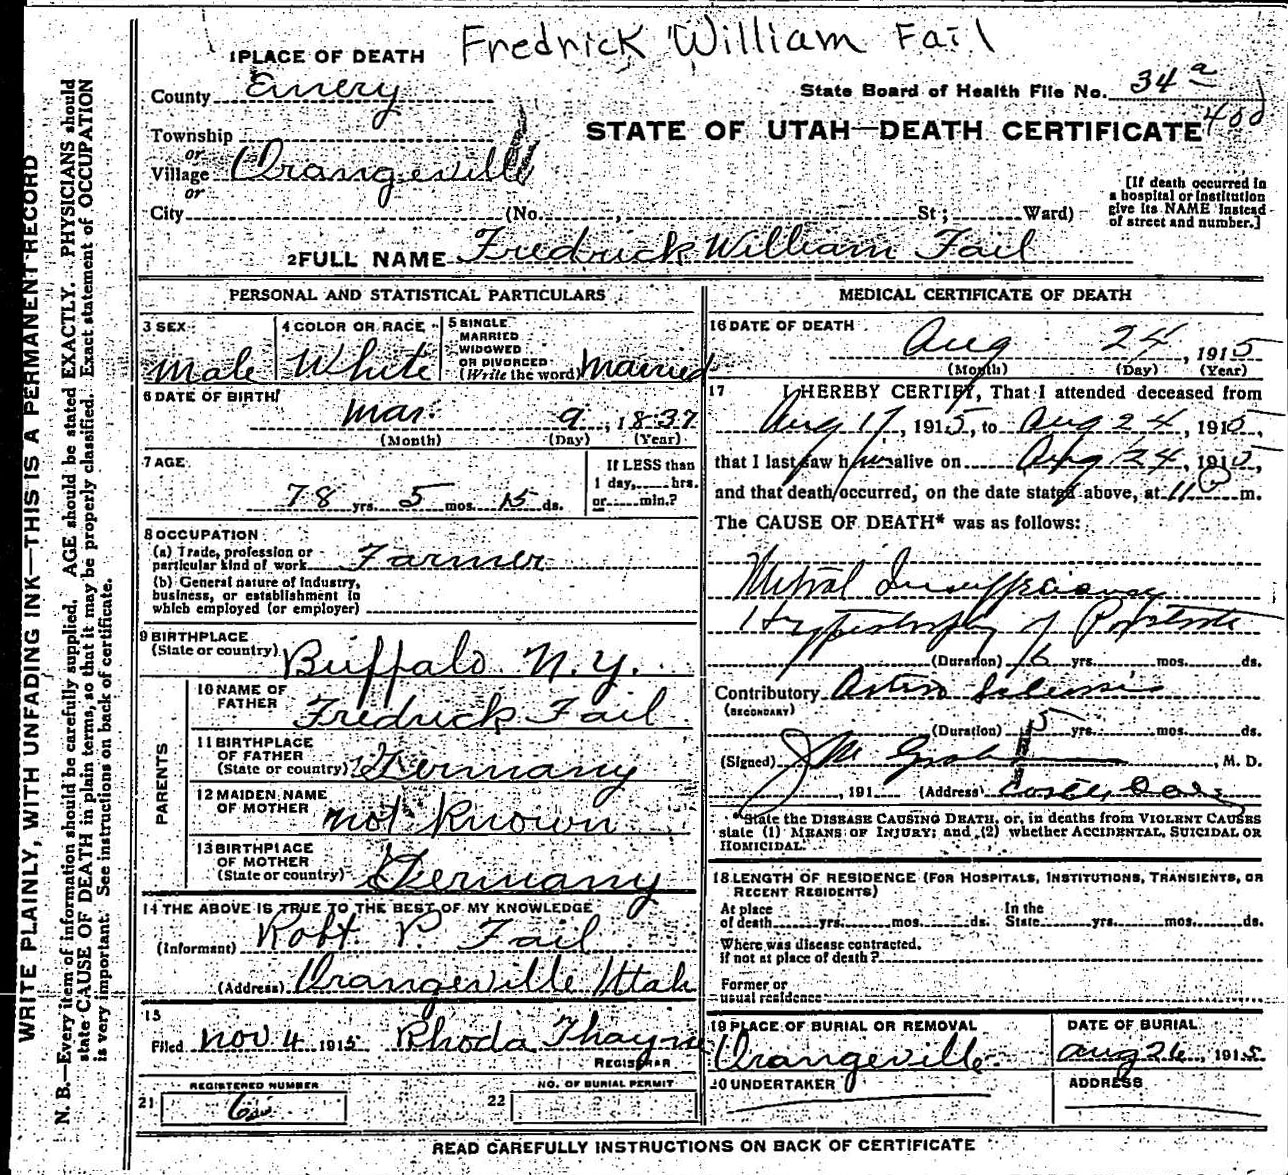 Fredrick William Fail
1 PLACE OF DEATH
County Emery
State Board of Health File No. 34 a
400
Township
or
Village Orangeville
or
STATE OF UTAH—DEATH CERTIFICATE
City (No. , St ; Ward)
[If death occurred in
a hospital or institution
give its NAME instead
of street and number.]
2 FULL NAME Fredrick William Fail
PERSONAL AND STATISTICAL PARTICULARS
3 SEX Male
4 COLOR OR RACE White
5 SINGLE
MARRIED
WIDOWED
OR DIVORCED
(Write the word) Married
6 DATE OF BIRTH
Mar. 9, 1837
(Month) (Day) (Year)
7 AGE
78 yrs. 5 mos. 15 ds.
If LESS than
1 day, hrs.
or min.?
8 OCCUPATION
(a) Trade, profession or
particular kind of work Farmer
(b) General nature of industry,
business, or establishment in
which employed (or employer)
9 BIRTHPLACE
(State or country) Buffalo N.Y.
PARENTS
10 NAME OF
FATHER Fredrick Fail
11 BIRTHPLACE
OF FATHER
(State or country) Germany
12 MAIDEN NAME
OF MOTHER not Known
13 BIRTHPLACE
OF MOTHER
(State or country) Germany
14 THE ABOVE IS TRUE TO THE BEST OF MY KNOWLEDGE
(Informant) Robt. P. Fail
(Address) Orangeville Utah
15
Filed Nov 4 1915 Rhoda Thayn
REGISTRAR
REGISTERED NUMBER
21
NO. OF BURIAL PERMIT
22
MEDICAL CERTIFICATE OF DEATH
16 DATE OF DEATH
Aug 24, 1915
(Month) (Day) (Year)
17 I HEREBY CERTIFY, That I attended deceased from
Aug 17, 1915, to Aug 24, 1915,
that I last saw him alive on Aug 24, 1915,
and that death occurred, on the date stated above, at 11 m.
The CAUSE OF DEATH* was as follows:
Mitral Insufficiency
Hypertrophy of Prostate
(Duration) yrs. mos. ds.
Contributory Arterio Sclerosis
(SECONDARY)
(Duration) 15 yrs. mos. ds.
(Signed) J M , M. D.
, 191 (Address) Castle Dale
*State the DISEASE CAUSING DEATH, or, in deaths from VIOLENT CAUSES
state (1) MEANS OF INJURY; and (2) whether ACCIDENTAL, SUICIDAL OR
HOMICIDAL.
18 LENGTH OF RESIDENCE (FOR HOSPITALS, INSTITUTIONS, TRANSIENTS, OR
RECENT RESIDENTS)
At place
of death yrs. mos. ds.
In the
State yrs. mos. ds.
Where was disease contracted.
if not at place of death?
Former or
usual residence
19 PLACE OF BURIAL OR REMOVAL
Orangeville
DATE OF BURIAL
Aug 26, 1915
20 UNDERTAKER
ADDRESS
READ CAREFULLY INSTRUCTIONS ON BACK OF CERTIFICATE
WRITE PLAINLY, WITH UNFADING INK—THIS IS A PERMANENT RECORD
N. B.—Every item of information should be carefully supplied. AGE should be stated EXACTLY. PHYSICIANS should
state CAUSE OF DEATH in plain terms, so that it may be properly classified. Exact statement of OCCUPATION
is very important. See instructions on back of certificate.